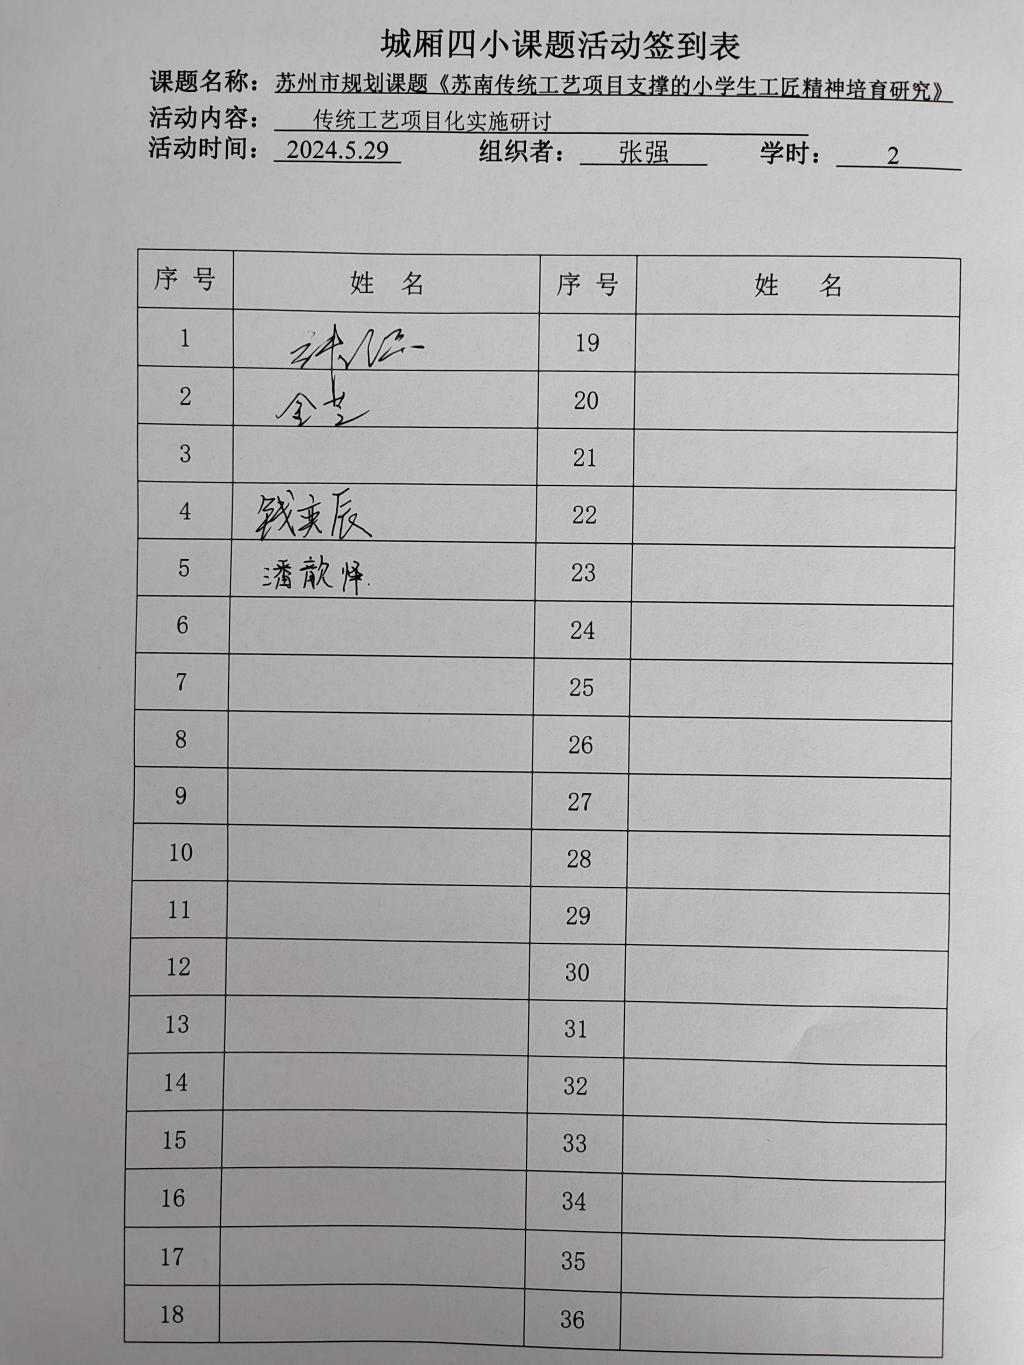 城厢四小课题活动签到表
课题名称：苏州市规划课题《苏南传统工艺项目支撑的小学生工匠精神培育研究》
活动内容：传统工艺项目化实施研讨
活动时间：2024.5.29 组织者：张强 学时：2
序号 姓名 序号 姓名
1 19
2 金芝 20
3 21
4 钱奕辰 22
5 潘歆怿 23
6 24
7 25
8 26
9 27
10 28
11 29
12 30
13 31
14 32
15 33
16 34
17 35
18 36